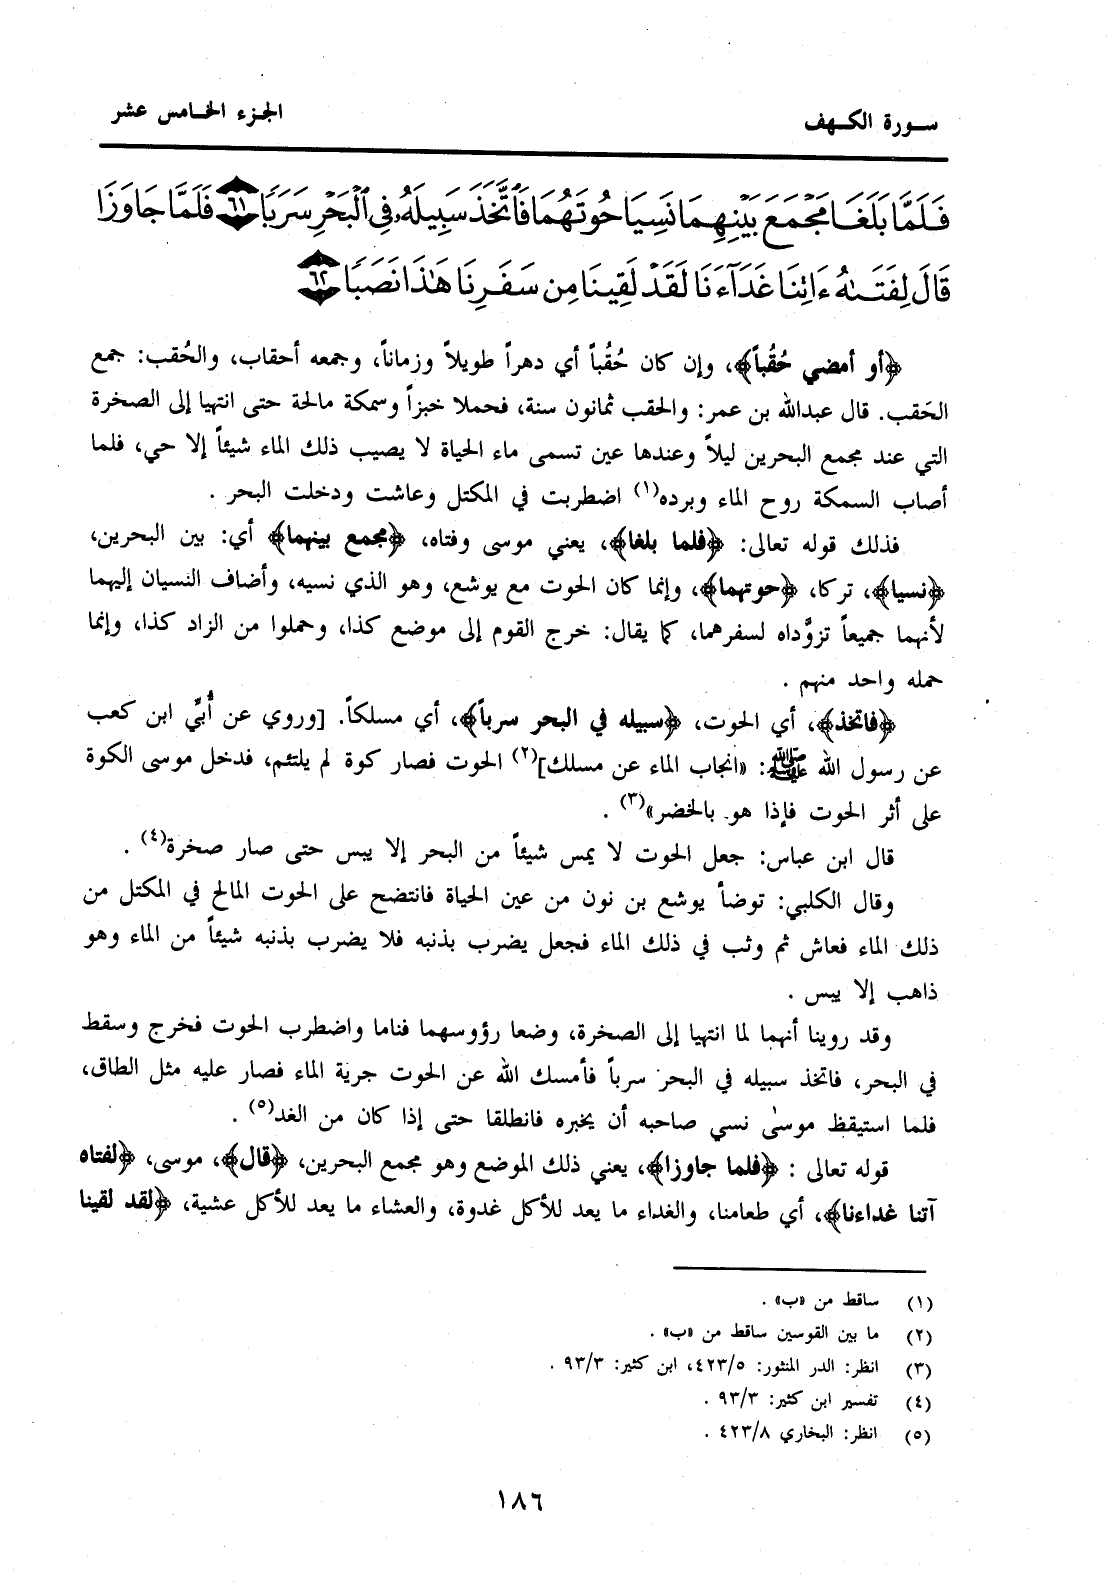 سورة الكهف
الجزء الخامس عشر
فَلَمَّا بَلَغَا مَجْمَعَ بَيْنِهِمَا نَسِيَا حُوتَهُمَا فَاتَّخَذَ سَبِيلَهُ فِي الْبَحْرِ سَرَبًا ﴿٦١﴾ فَلَمَّا جَاوَزَا
قَالَ لِفَتَىٰهُ ءَاتِنَا غَدَآءَنَا لَقَدْ لَقِينَا مِن سَفَرِنَا هَٰذَا نَصَبًا ﴿٦٢﴾
﴿أو أمضي حُقُباً﴾، وإن كان حُقُباً أي دهراً طويلاً وزماناً، وجمعه أحقاب، والحُقب: جمع
الحَقب. قال عبدالله بن عمر: والحقب ثمانون سنة، فحملا خبزاً وسمكة مالحة حتى انتهيا إلى الصخرة
التي عند مجمع البحرين ليلاً وعندها عين تسمى ماء الحياة لا يصيب ذلك الماء شيئاً إلا حي، فلما
أصاب السمكة روح الماء وبرده(١) اضطربت في المكتل وعاشت ودخلت البحر .
فذلك قوله تعالى: ﴿فلما بلغا﴾، يعني موسى وفتاه، ﴿مجمع بينهما﴾ أي: بين البحرين،
﴿نسيا﴾، تركا، ﴿حوتهما﴾، وإنما كان الحوت مع يوشع، وهو الذي نسيه، وأضاف النسيان إليهما
لأنهما جميعاً تزوَّداه لسفرهما، كما يقال: خرج القوم إلى موضع كذا، وحملوا من الزاد كذا، وإنما
حمله واحد منهم .
﴿فاتخذ﴾، أي الحوت، ﴿سبيله في البحر سرباً﴾، أي مسلكاً. [وروي عن أُبيّ ابن كعب
عن رسول الله ﷺ: «انجاب الماء عن مسلك](٢) الحوت فصار كوة لم يلتئم، فدخل موسى الكوة
على أثر الحوت فإذا هو بالخضر»(٣) .
قال ابن عباس: جعل الحوت لا يمس شيئاً من البحر إلا يبس حتى صار صخرة(٤) .
وقال الكلبي: توضأ يوشع بن نون من عين الحياة فانتضح على الحوت المالح في المكتل من
ذلك الماء فعاش ثم وثب في ذلك الماء فجعل يضرب بذنبه فلا يضرب بذنبه شيئاً من الماء وهو
ذاهب إلا يبس .
وقد روينا أنهما لما انتهيا إلى الصخرة، وضعا رؤوسهما فناما واضطرب الحوت فخرج وسقط
في البحر، فاتخذ سبيله في البحر سرباً فأمسك الله عن الحوت جرية الماء فصار عليه مثل الطاق،
فلما استيقظ موسىٰ نسي صاحبه أن يخبره فانطلقا حتى إذا كان من الغد(٥) .
قوله تعالى : ﴿فلما جاوزا﴾، يعني ذلك الموضع وهو مجمع البحرين، ﴿قال﴾، موسى، ﴿لفتاه
آتنا غداءنا﴾، أي طعامنا، والغداء ما يعد للأكل غدوة، والعشاء ما يعد للأكل عشية، ﴿لقد لقينا
(١) ساقط من «ب» .
(٢) ما بين القوسين ساقط من «ب» .
(٣) انظر: الدر المنثور: ٤٢٣/٥، ابن كثير: ٩٣/٣ .
(٤) تفسير ابن كثير: ٩٣/٣ .
(٥) انظر: البخاري ٤٢٣/٨ .
١٨٦